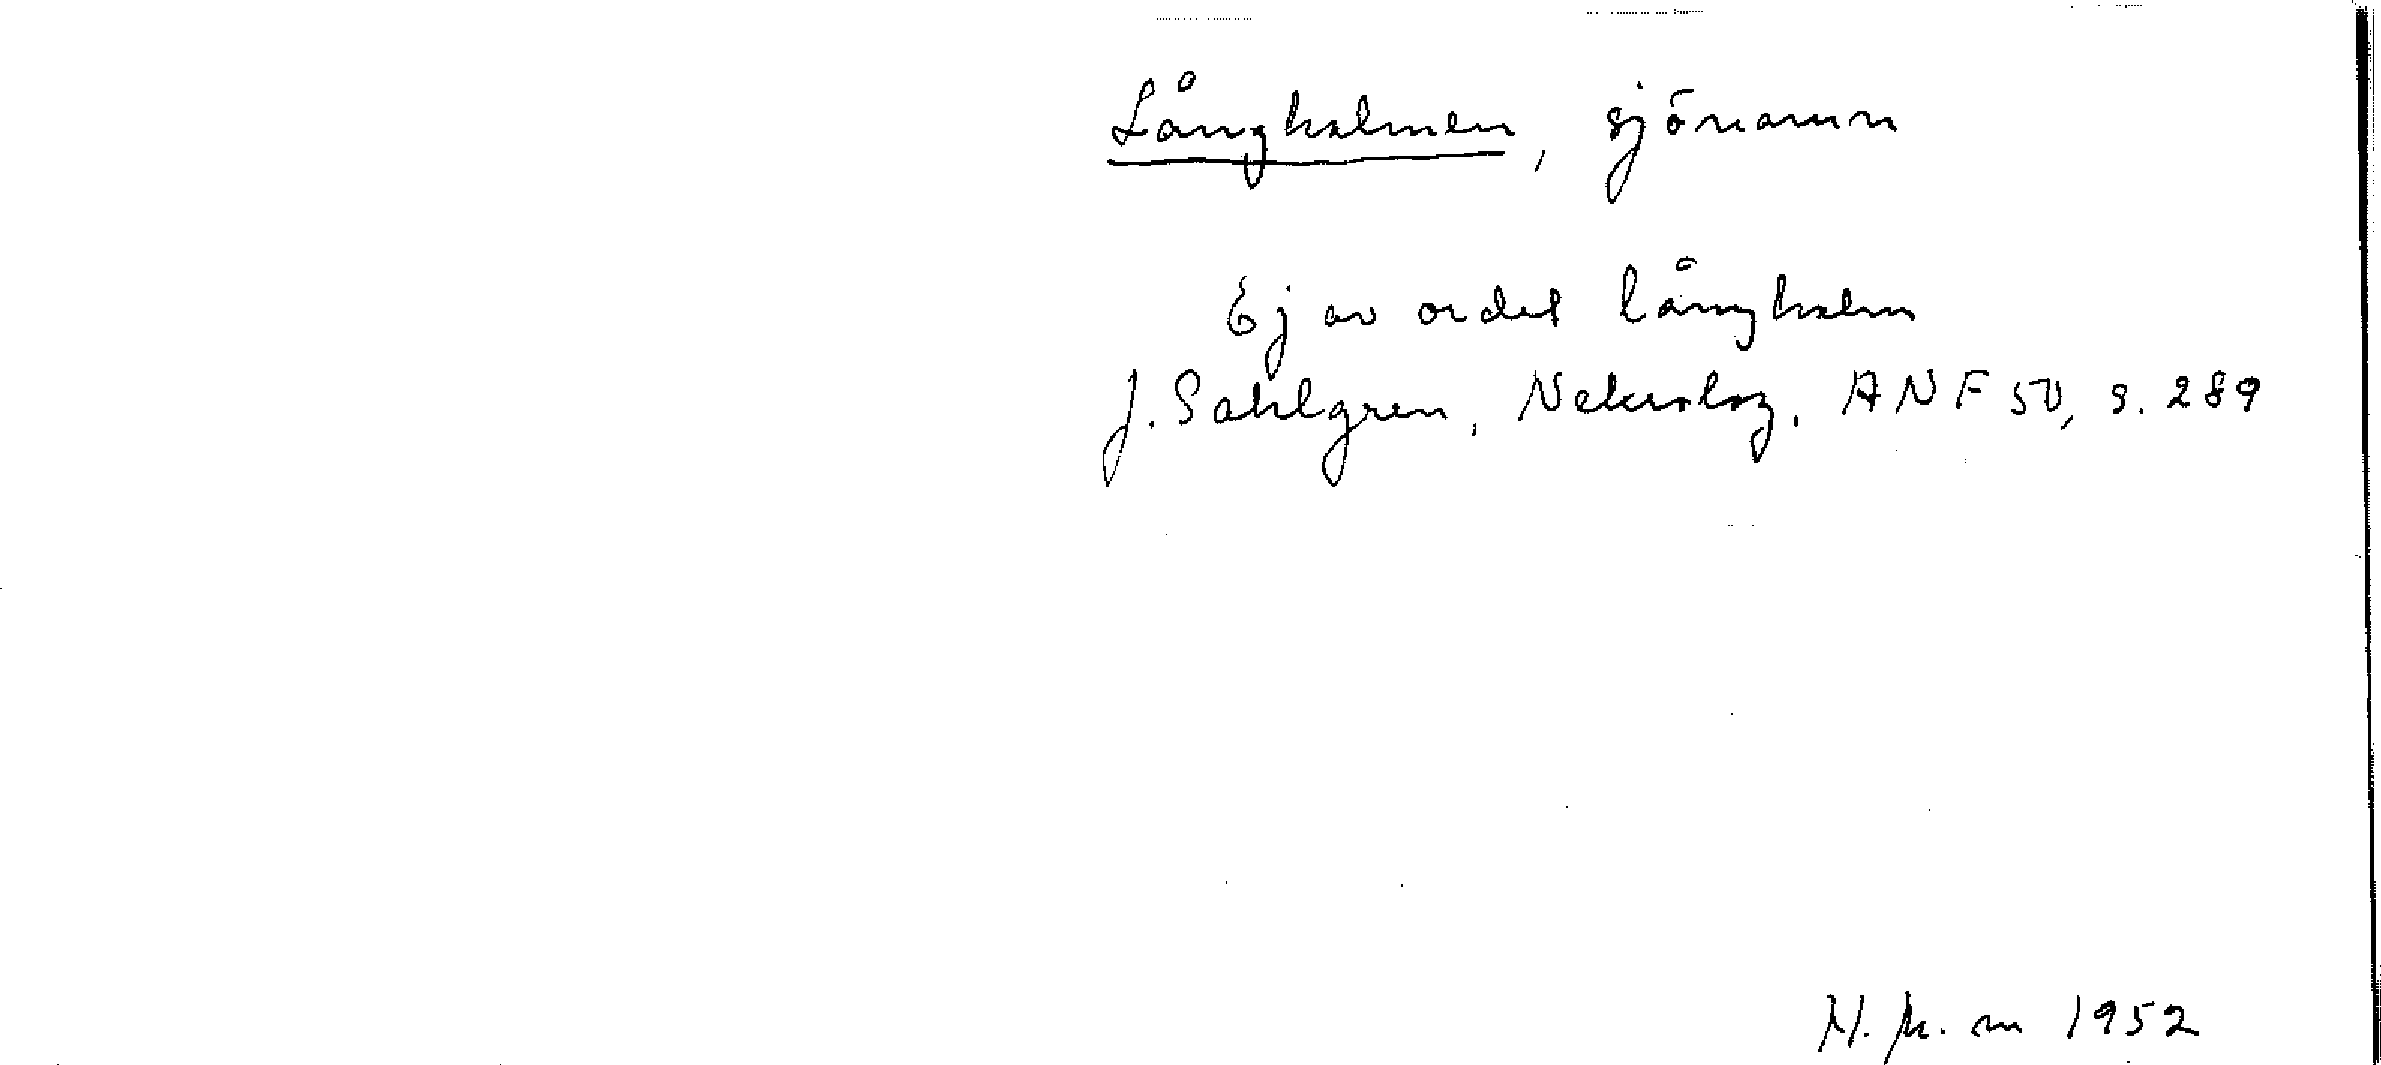 Långholmen, sjönamn
Ej av ordet långholm
J. Sahlgren, Nekrolog. ANF 50, s. 289
1952